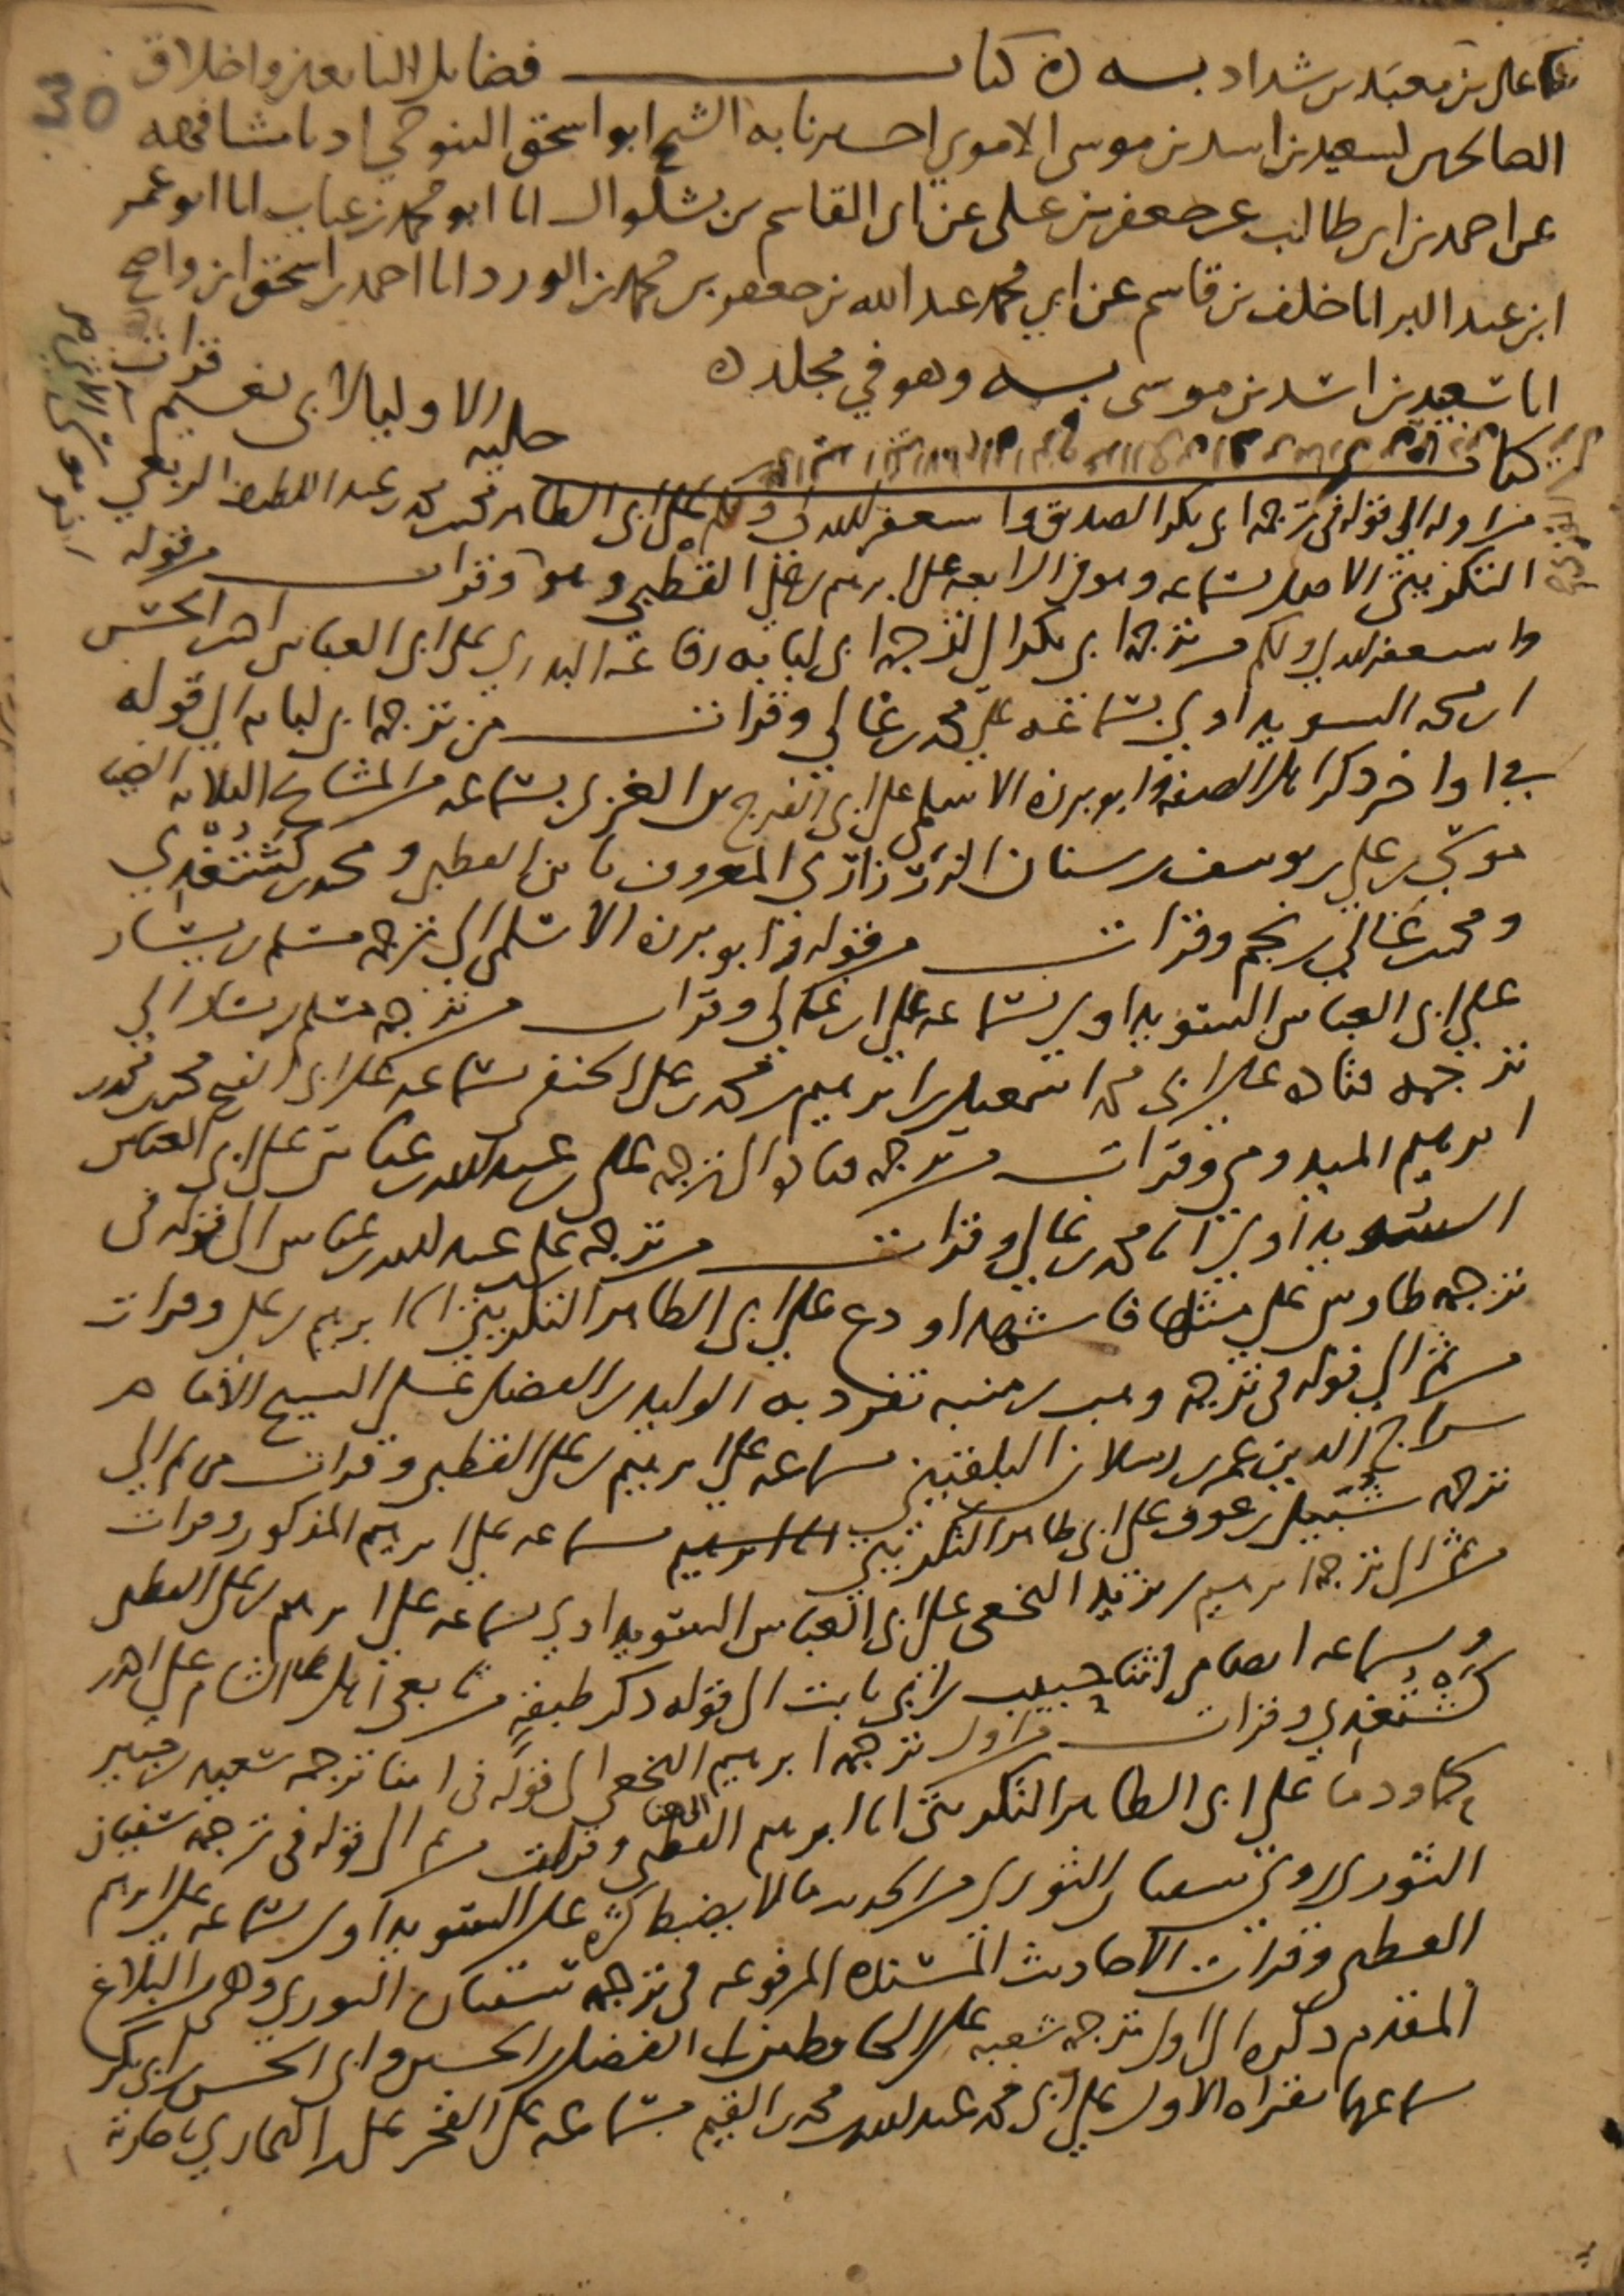 علي بن معبد بن شداد به ٥ كتاب فضايل التابعين واخلاق
الصالحين لسعيد بن اسد بن موسى الاموي اخبرنا به الشيخ ابو اسحق التنوخي اذنا مشافهه
عن احمد بن ابي طالب عن جعفر بن علي عن ابي القاسم بن بشكوال انا ابو محمد بن عتاب انا ابو عمر
ابن عبد البر انا خلف بن قاسم عن ابي محمد عبد الله بن جعفر بن محمد بن الورد انا احمد بن اسحق بن واضح
انا سعيد بن اسد بن موسى به وهو في مجلد ٥
كتاب حليه الاوليا لابي نعيم قرات
من اوله الى قوله في ترجمه ابي بكر الصديق واستغفر الله لي ولكم على ابي الطاهر محمد بن محمد بن عبد اللطيف الربعي
التكريتي الاصل بسماعه وهو في الرابعه على ابرهيم بن علي القطبي وهو وقرات من قوله
واستغفر الله لي ولكم من ترجمه ابي بكر الى ترجمه ابي لبابه رفاعه البدري على ابي العباس احمد بن الحسن
السويداوي بسماعه على محمد بن غالي وقرات من ترجمه ابي لبابه الى قوله
في اواخر ذكر اهل الصفه وابو برزه الاسلمي على ابي الفرج بن الغزي بسماعه من المشايخ الثلاثه
علي بن يوسف بن سنان الزرزاري المعروف بابن القطبي و محمد بن كشتغدي
ومحمد بن غالي بن نجم وقرات من قوله وابو برزه الاسلمي الى ترجمه مسلم بن يسار
على ابي العباس السويداوي بسماعه على ابن غالي وقرات من ترجمه مسلم بن يسار الى
ترجمه قتاده على ابي محمد اسمعيل بن ابرهيم بن محمد بن علي الحنفي بسماعه على ابي الفتح محمد بن محمد
ابرهيم الميدومي وقرات من ترجمه قتاده الى ترجمه علي بن عبد الله بن عباس على ابي العباس
السويداوي انا محمد بن غالي وقرات من ترجمه علي بن عبد الله بن عباس الى قوله في
ترجمه طاوس على مثلها فاشهد او دع على ابي الطاهر التكريتي انا ابرهيم بن علي وقرات
من ثم الى قوله في ترجمه وهب بن منبه تفرد به الوليد بن الفضل على الشيخ الامام
سراج الدين عمر بن رسلان البلقيني بسماعه على ابرهيم بن علي القطبي وقرات من ثم الى
ترجمه شبيل بن عوف على ابي طاهر التكريتي بسماعه على ابرهيم المذكور وقرات
من ثم الى ترجمه ابرهيم بن يزيد النخعي على ابي العباس السويداوي بسماعه على ابرهيم بن علي القطبي
وبسماعه ايضا من اثنا حبيب بن ابي ثابت الى قوله ذكر طبقه من تابعي اهل الشام على احمد
كشتغدي وقرات من اول ترجمه ابرهيم النخعي الى قوله في اثنا ترجمه سعيد بن جبير
على ابي الطاهر التكريتي انا ابرهيم القطبي وقرات من ثم الى قوله في ترجمه سفيان
الثوري روى سفيان الثوري من الحديث ما لا يضبط كثره على السويداوي بسماعه على ابرهيم
القطبي وقرات الاحاديث المسنده المرفوعه في ترجمه سفيان الثوري وهي البلاغ
المقدم ذكره الى اول ترجمه شعبه على الحافظين ابي الفضل بن الحسين وابي الحسن بن ابي بكر
بسماعهما بقراه الاول على ابي محمد عبد الله بن محمد بن القيم بسماعه على الفخر علي بن البخاري باجازته